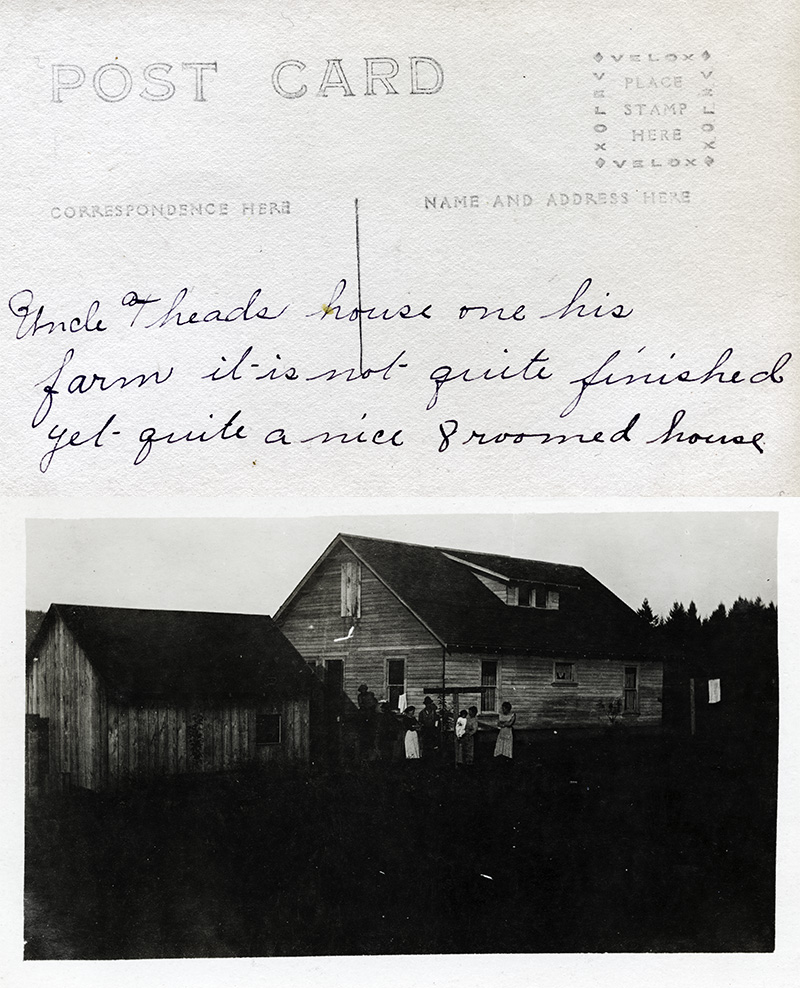 POST CARD
VELOX
VELOX
PLACE
STAMP
HERE
VELOX
VELOX
CORRESPONDENCE HERE
NAME AND ADDRESS HERE
Uncle Theads house one his
farm it is not quite finished
yet quite a nice 8 roomed house